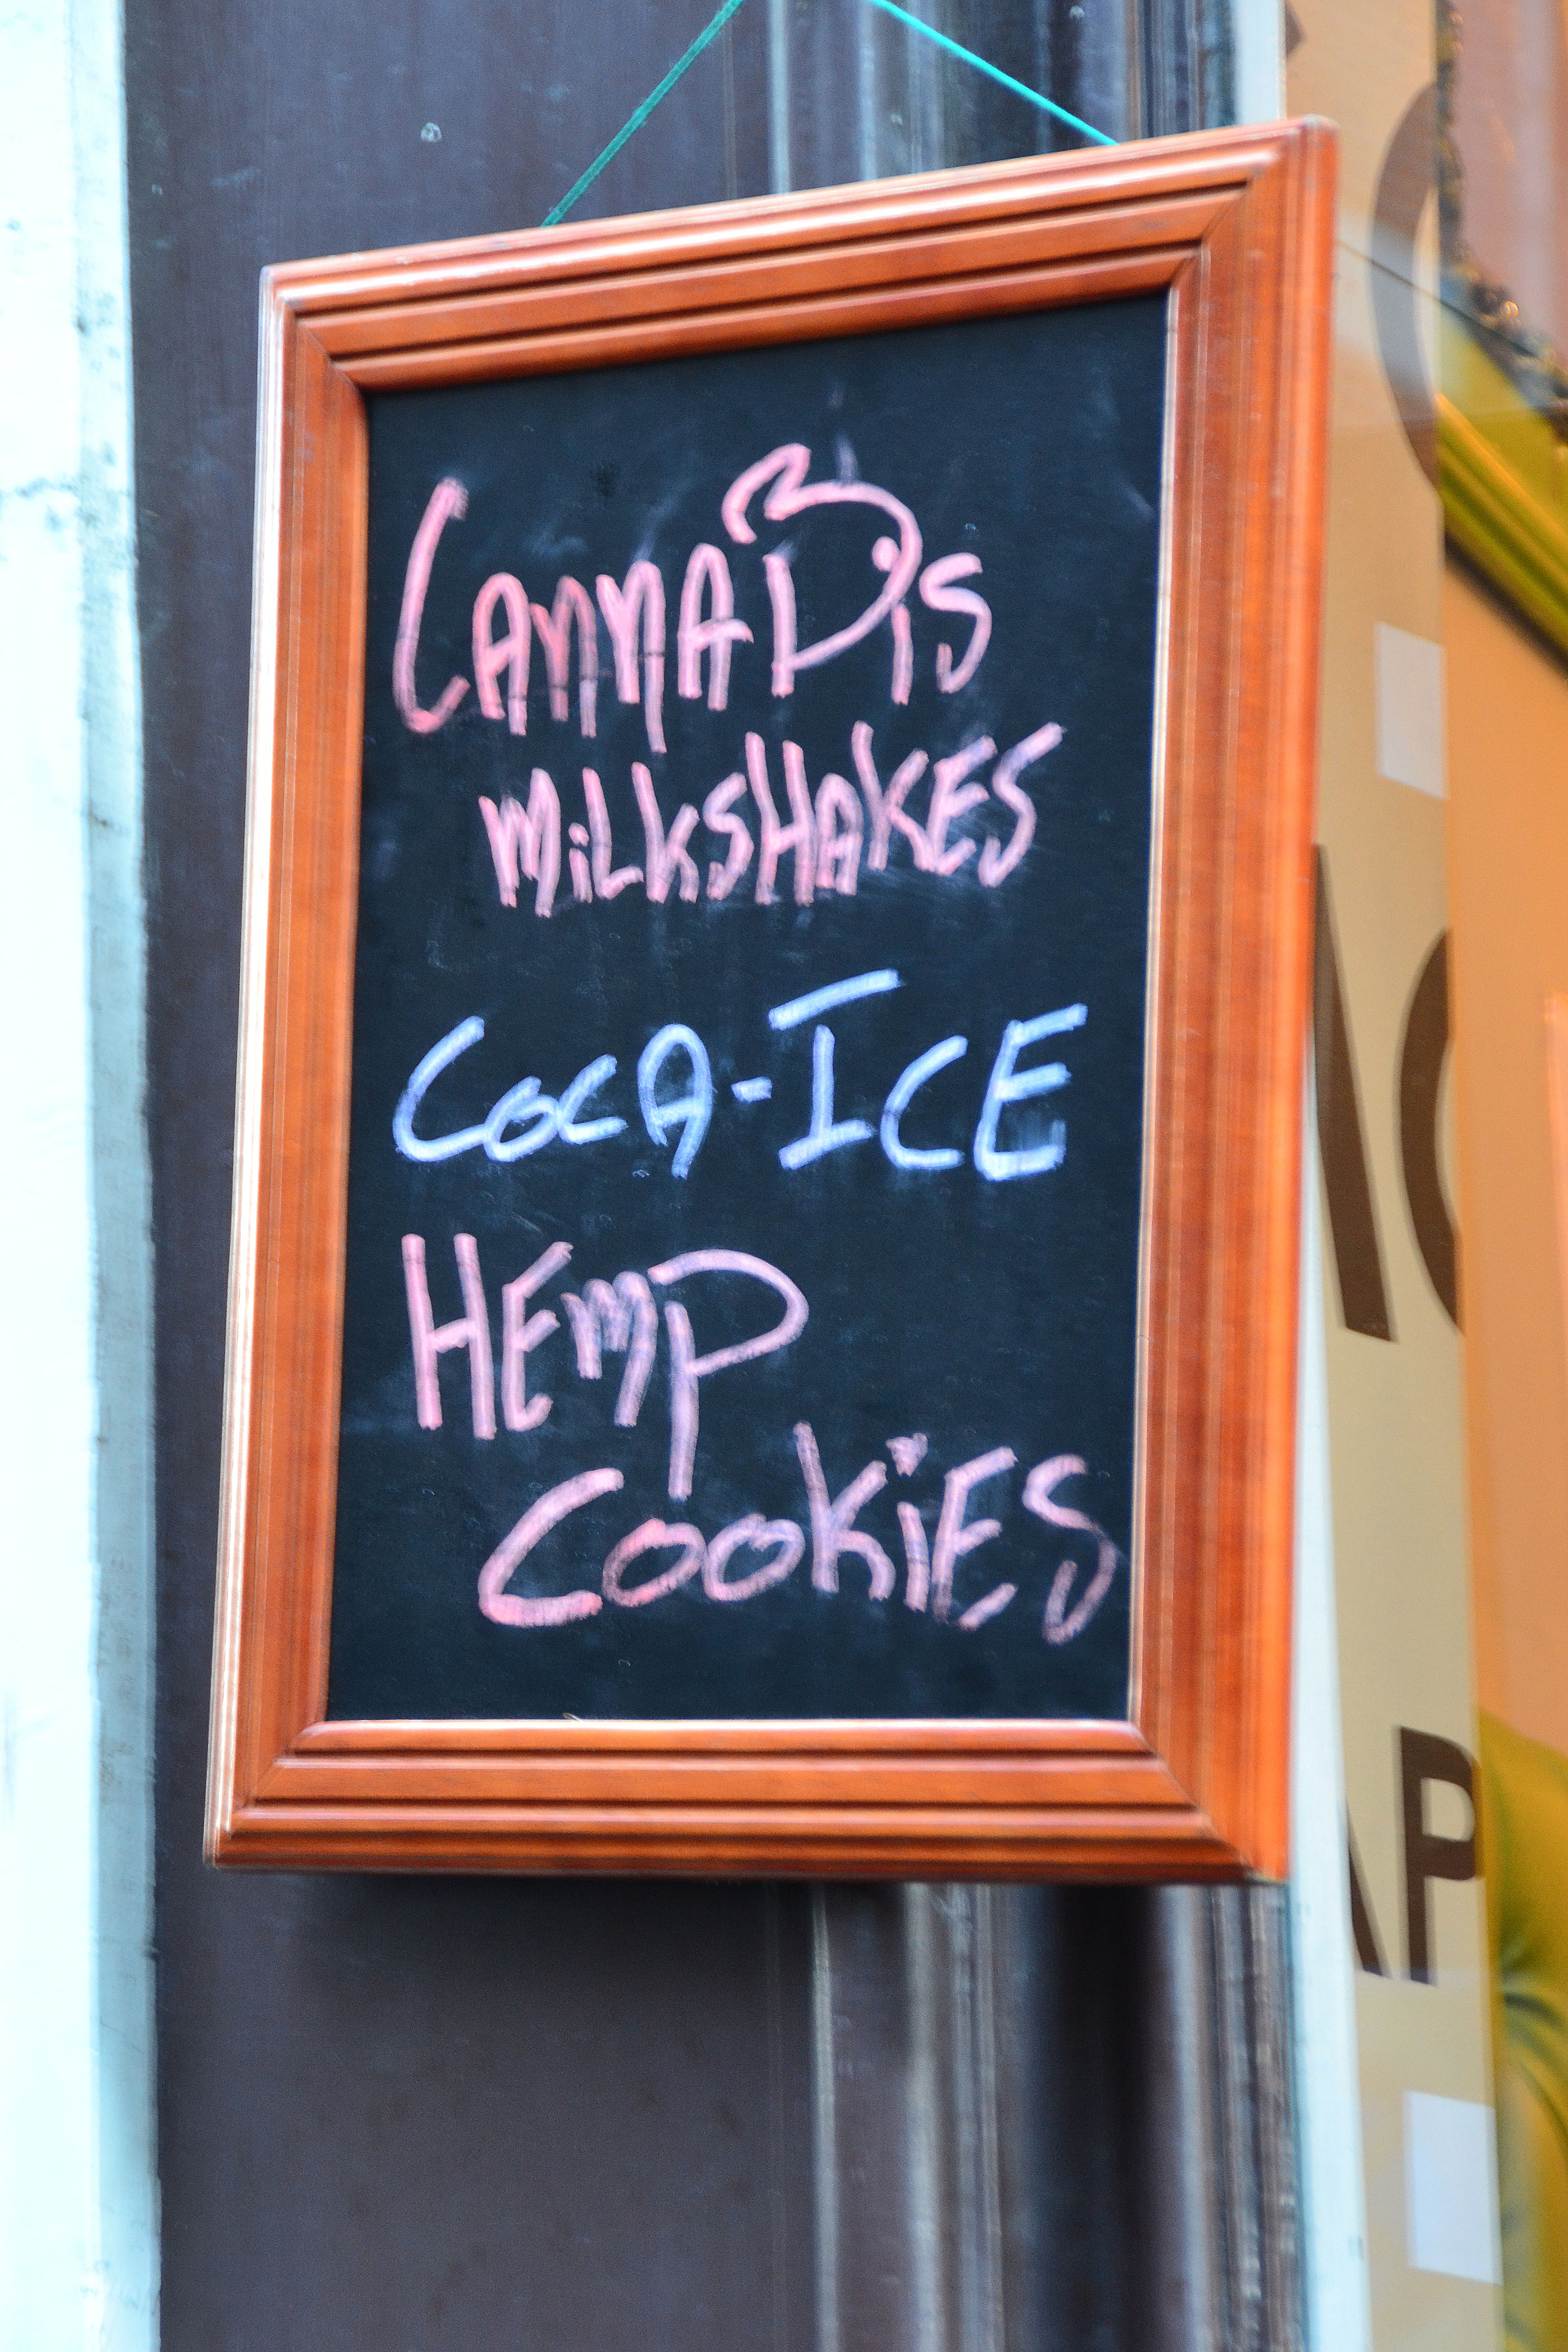 CANNABIS
MiLKSHAKES
COCA-ICE
HEMP
COOKiES
AP